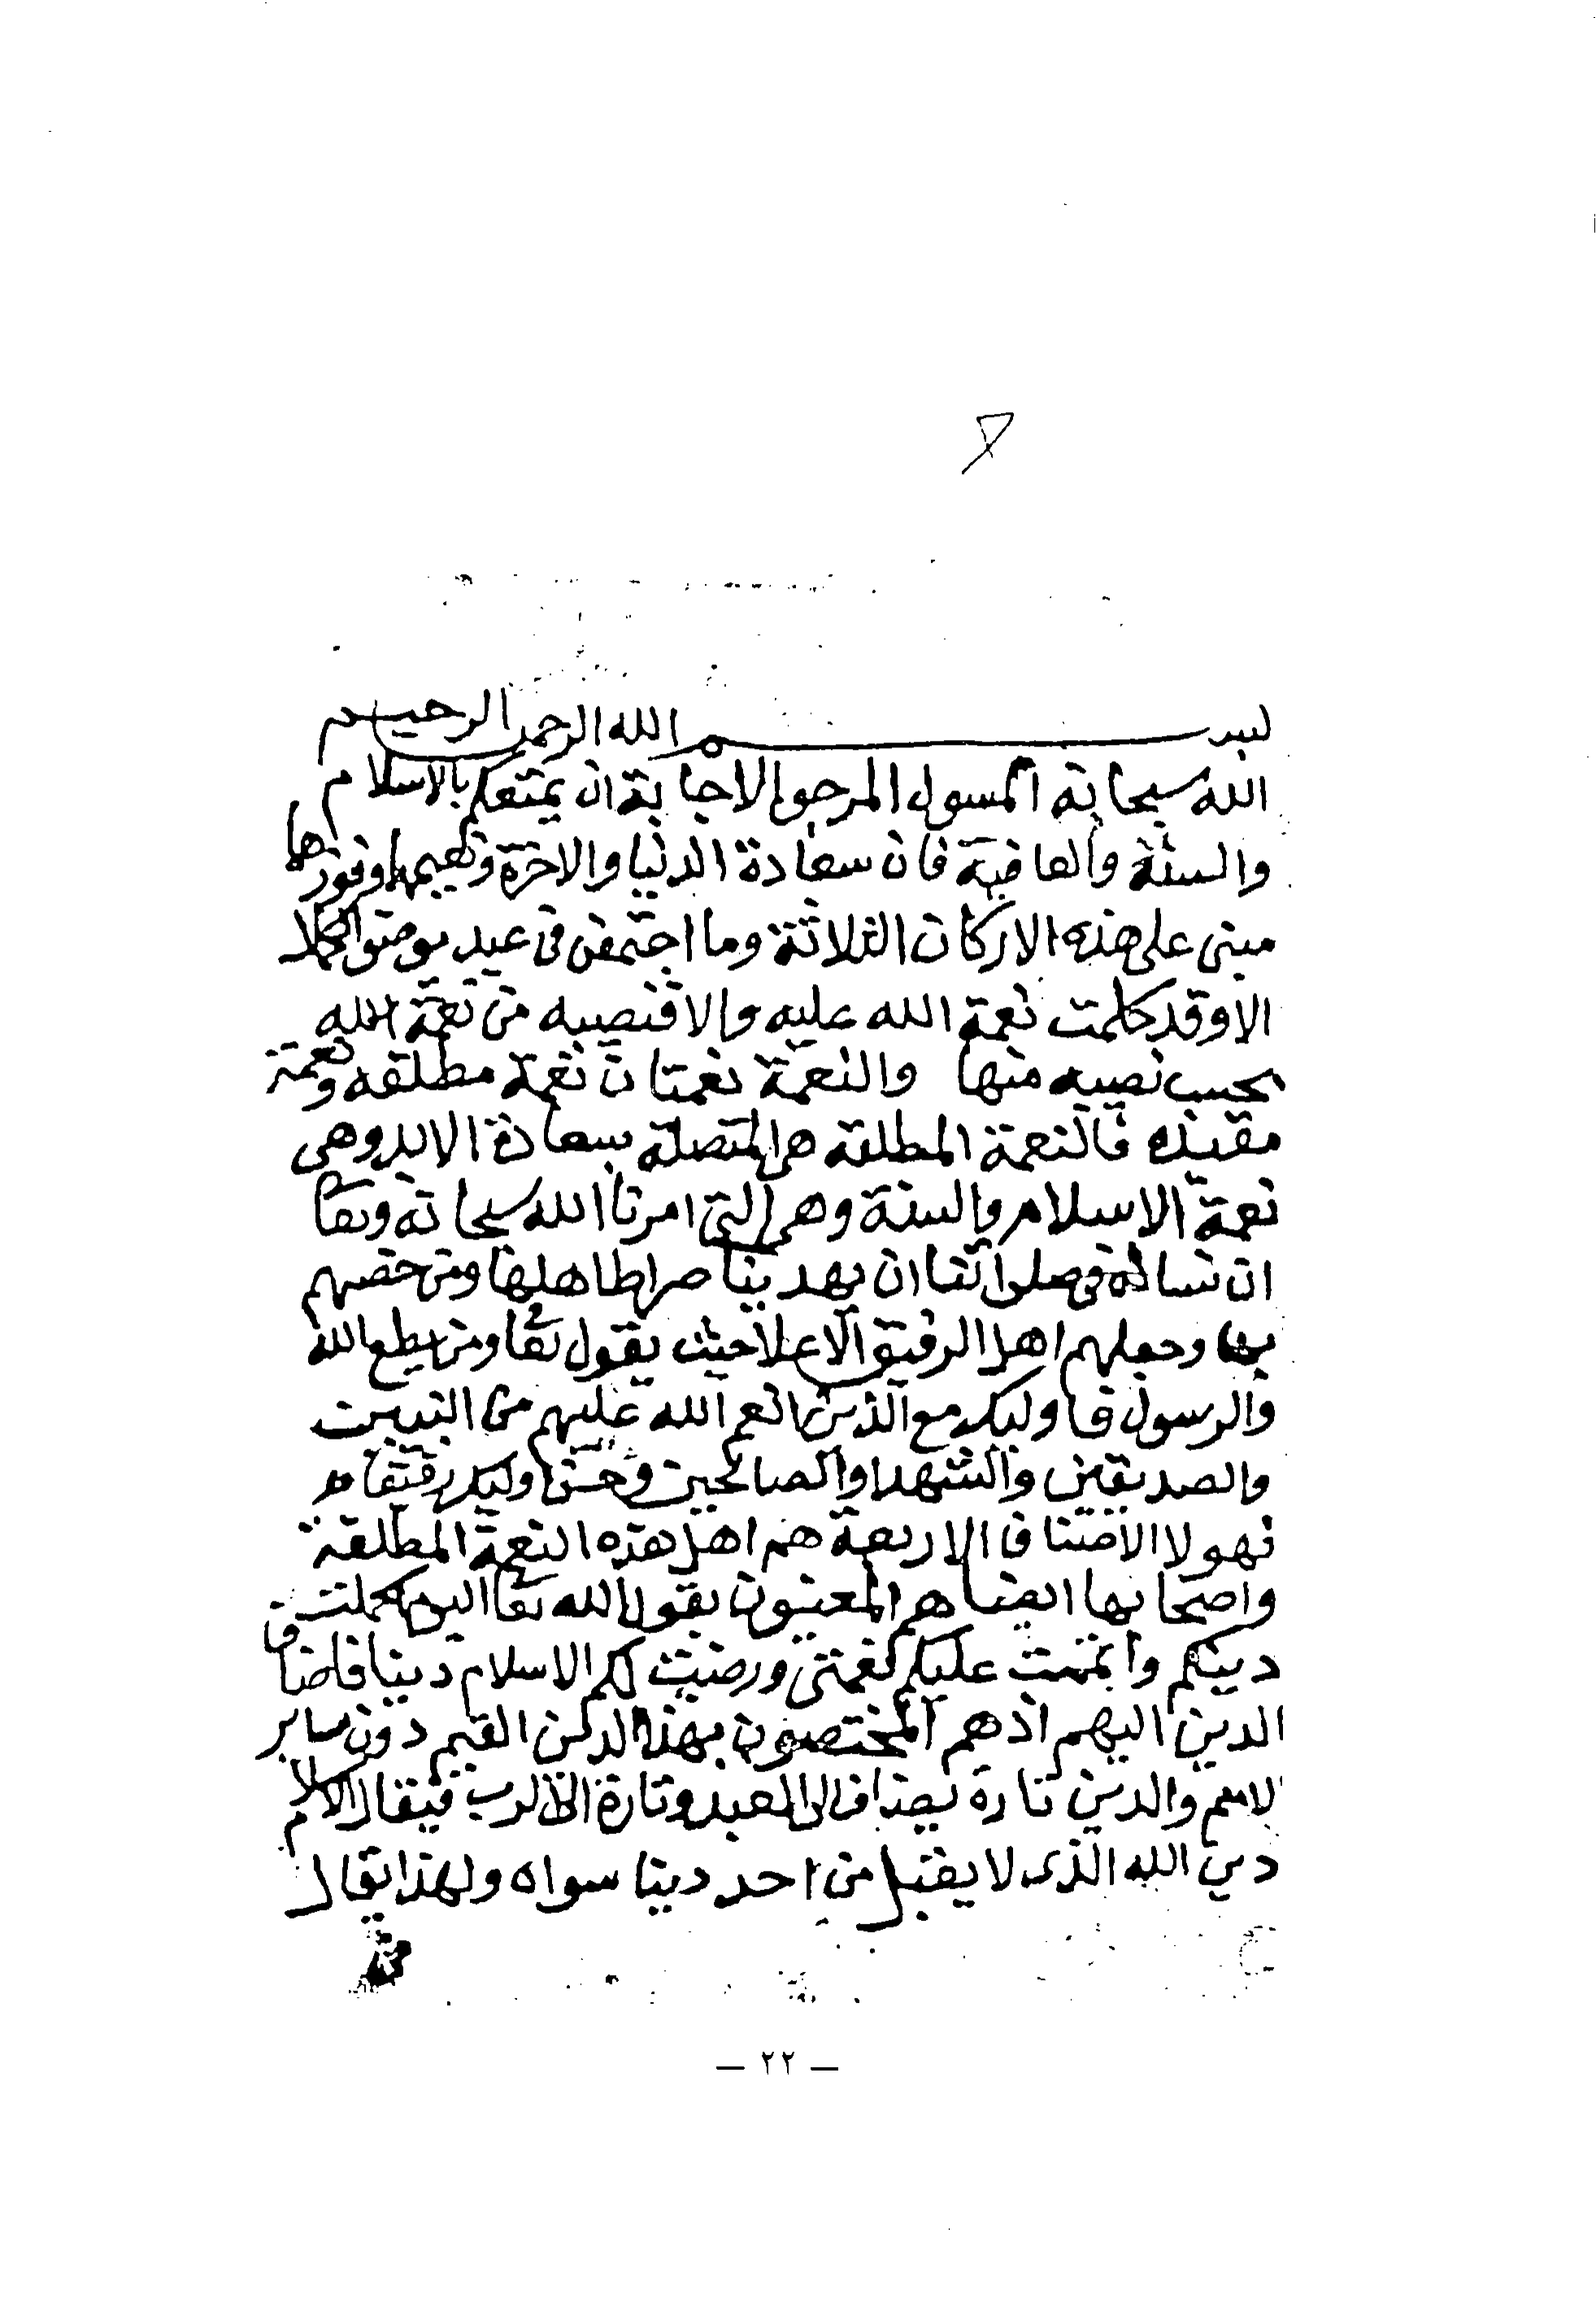 بسم الله الرحمن الرحيم
الله سبحانه المسول المرجو الاجابة ان يمتعكم بالاسلام
والسنة والعافية فان سعادة الدنيا والاخرة ونعيمهما وفوزهما
مبنى على هذه الاركان الثلاثة وما اجتمعن فى عبد بوصف الكمال
الا وقد كملت نعمة الله عليه والا فنصيبه من نعمة الله
بحسب نصيبه منها والنعمة نعمتان نعمة مطلقه ونعمة
مقيده فالنعمة المطلقة هى المتصلة بسعادة الابد وهى
نعمة الاسلام والسنة وهى التى امرنا الله سبحانه وتعا
ان نساله فى صلواتنا ان يهدينا صراط اهلها ومن خصهم
بها وجعلهم اهل الرفيق الاعلا حيث يقول تعا ومن يطع الله
والرسول فاوليك مع الذين انعم الله عليهم من النبيين
والصديقين والشهدا والصالحين وحسن اوليك رفيقا
فهولا الاصناف الاربعة هم اهل هذه النعمة المطلقة
واصحابها ايضا هم المعنيون بقول الله تعا اليوم اكملت
دينكم واتممت عليكم نعمتى ورضيت لكم الاسلام دينا فاضاف
الدين اليهم اذ هم المختصون بهذا الدين القيم دون ساير
الامم والدين تارة يضاف الى العبد وتارة الى الرب فيقال الاسلام
دين الله الذى لا يقبل من احد دينا سواه ولهذا يقال
— ٢٢ —